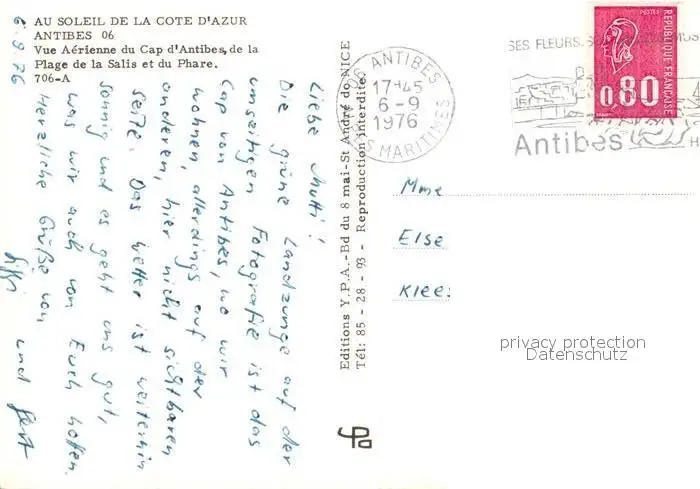 AU SOLEIL DE LA COTE D'AZUR
ANTIBES 06
Vue Aérienne du Cap d'Antibes, de la
Plage de la Salis et du Phare.
706-A
6.9.76
Liebe Mutti!
Die grüne Landzunge auf der
umseitigen Fotografie ist das
Cap von Antibes, wo wir
wohnen, allerdings auf der
anderen, hier nicht sichtbaren
Seite. Das Wetter ist weiterhin
sonnig und es geht uns gut,
was wir auch von Euch hoffen.
Herzliche Grüße von
und Gert
Editions Y.P.A.-Bd du 8 mai-St André de NICE
Tél: 85 - 28 - 93 - Reproduction interdite.
06 ANTIBES
17H45
6-9
1976
MARITIMES
SES FLEURS.
Antibes
POSTES
REPUBLIQUE FRANÇAISE
0,80
Mme
Else
Klee.
privacy protection
Datenschutz